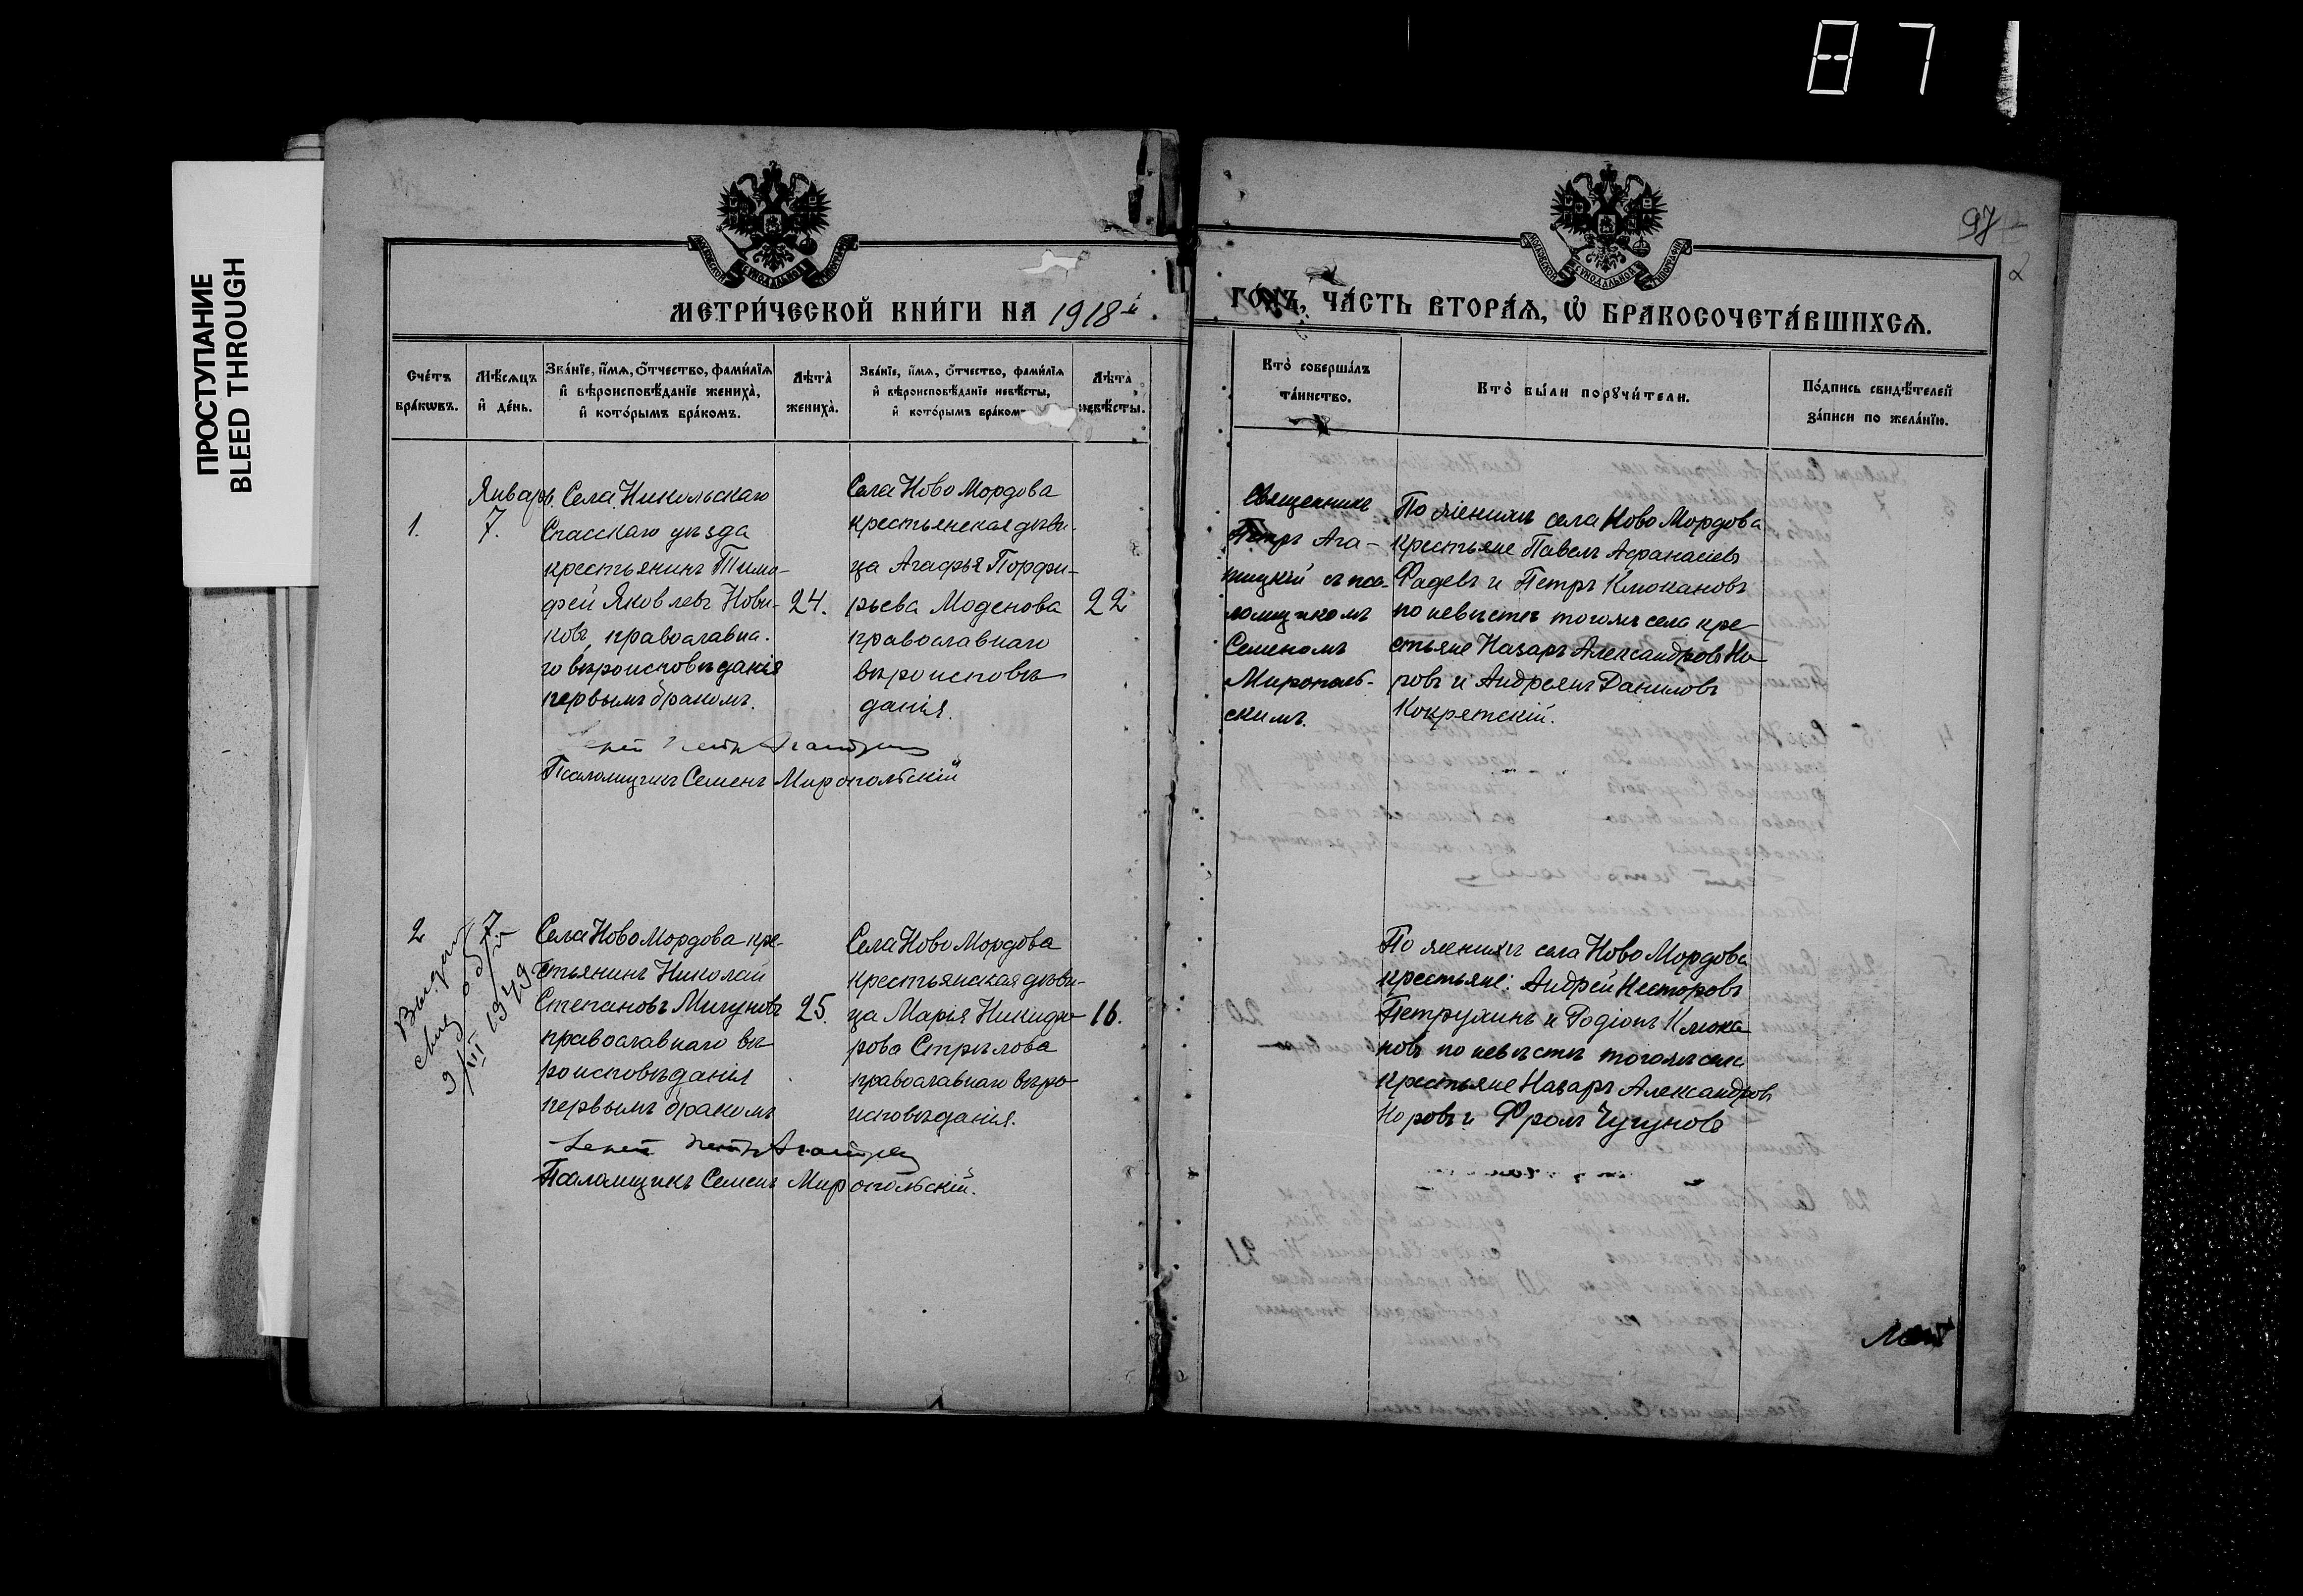 871
ПРОСТУПАНИЕ
BLEED THROUGH
97
2
МЕТРИ́ЧЕСКОЙ КНИ́ГИ НА 1918й
ГО́ДЪ, ЧА́СТЬ ВТОРА́Ѧ, Ѽ БРАКОСОЧЕТА́ВШИХСѦ.
Сче́тъ бра́кѡвъ.
Мѣ́сѧцъ и҆ де́нь.
Зва́нїе, и҆́мѧ, ѻ҆́тчество, фами́лїѧ
и҆ вѣроисповѣ́данїе жениха̀,
и҆ кото́рымъ бра́комъ.
Лѣта̀ жениха̀.
Зва́нїе, и҆́мѧ, ѻ҆́тчество, фами́лїѧ
и҆ вѣроисповѣ́данїе невѣ́сты,
и҆ кото́рымъ бракомъ
Лѣта̀ невѣ́сты.
Кто̀ соверша́лъ
та́инство.
Кто̀ бы́ли порꙋчи́тели.
По́дпись свидѣ́телей
за́писи по жела́нїю.
1.
Январь
7.
Села Никольскаго
Спасскаго уѣзда
крестьянинъ Тимо-
фей Яковлевъ Нови-
ковъ, православна-
го вѣроисповѣданія
первымъ бракомъ.
24.
Села Ново Мордова
крестьянская дѣви-
ца Агафья Порфи-
рьева Моденова
православнаго
вѣроисповѣ
данія.
22
Священникъ
Петръ Ага-
пицкій съ пса-
ломщикомъ
Семеномъ
Мирополь-
скимъ.
По женихѣ села Ново Мордова
крестьяне Павелъ Афанасіевъ
Фадевъ и Петръ Клюкановъ
по невѣстѣ тогожъ села кре
стьяне Назаръ Александровъ Но
ровъ и Андреянъ Даниловъ
Кокрятскій.
Петръ
Псаломщикъ Семенъ Миропольскій
2
7
Выдан
9/III 1929
Села Ново Мордова кре-
стьянинъ Николай
Степановъ Мигуновъ
православнаго вѣ
роисповѣданія
первымъ бракомъ
25.
Села Ново Мордова
крестьянская дѣви-
ца Марія Никифо
рова Стрѣлова
православнаго вѣро
исповѣданія.
16.
По женихѣ села Ново Мордова
крестьяне: Андрей Несторовъ
Петрухинъ и Родіонъ Клюка
новъ по невѣстѣ тогожъ села
крестьяне Назаръ Александровъ
Норовъ и Фролъ Чугуновъ
Іерей Петръ
Псаломщикъ Семенъ Миропольскій.